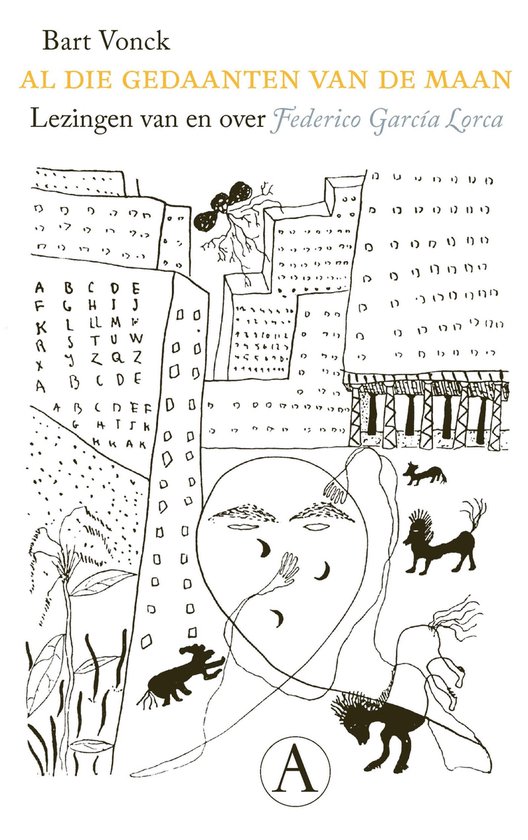 Bart Vonck
AL DIE GEDAANTEN VAN DE MAAN
Lezingen van en over Federico García Lorca
A B C D E
F G H I J
K L LL M
R S T U W
X Y Z Q Z
A B C D E
A B C D E F
G H I J K
A